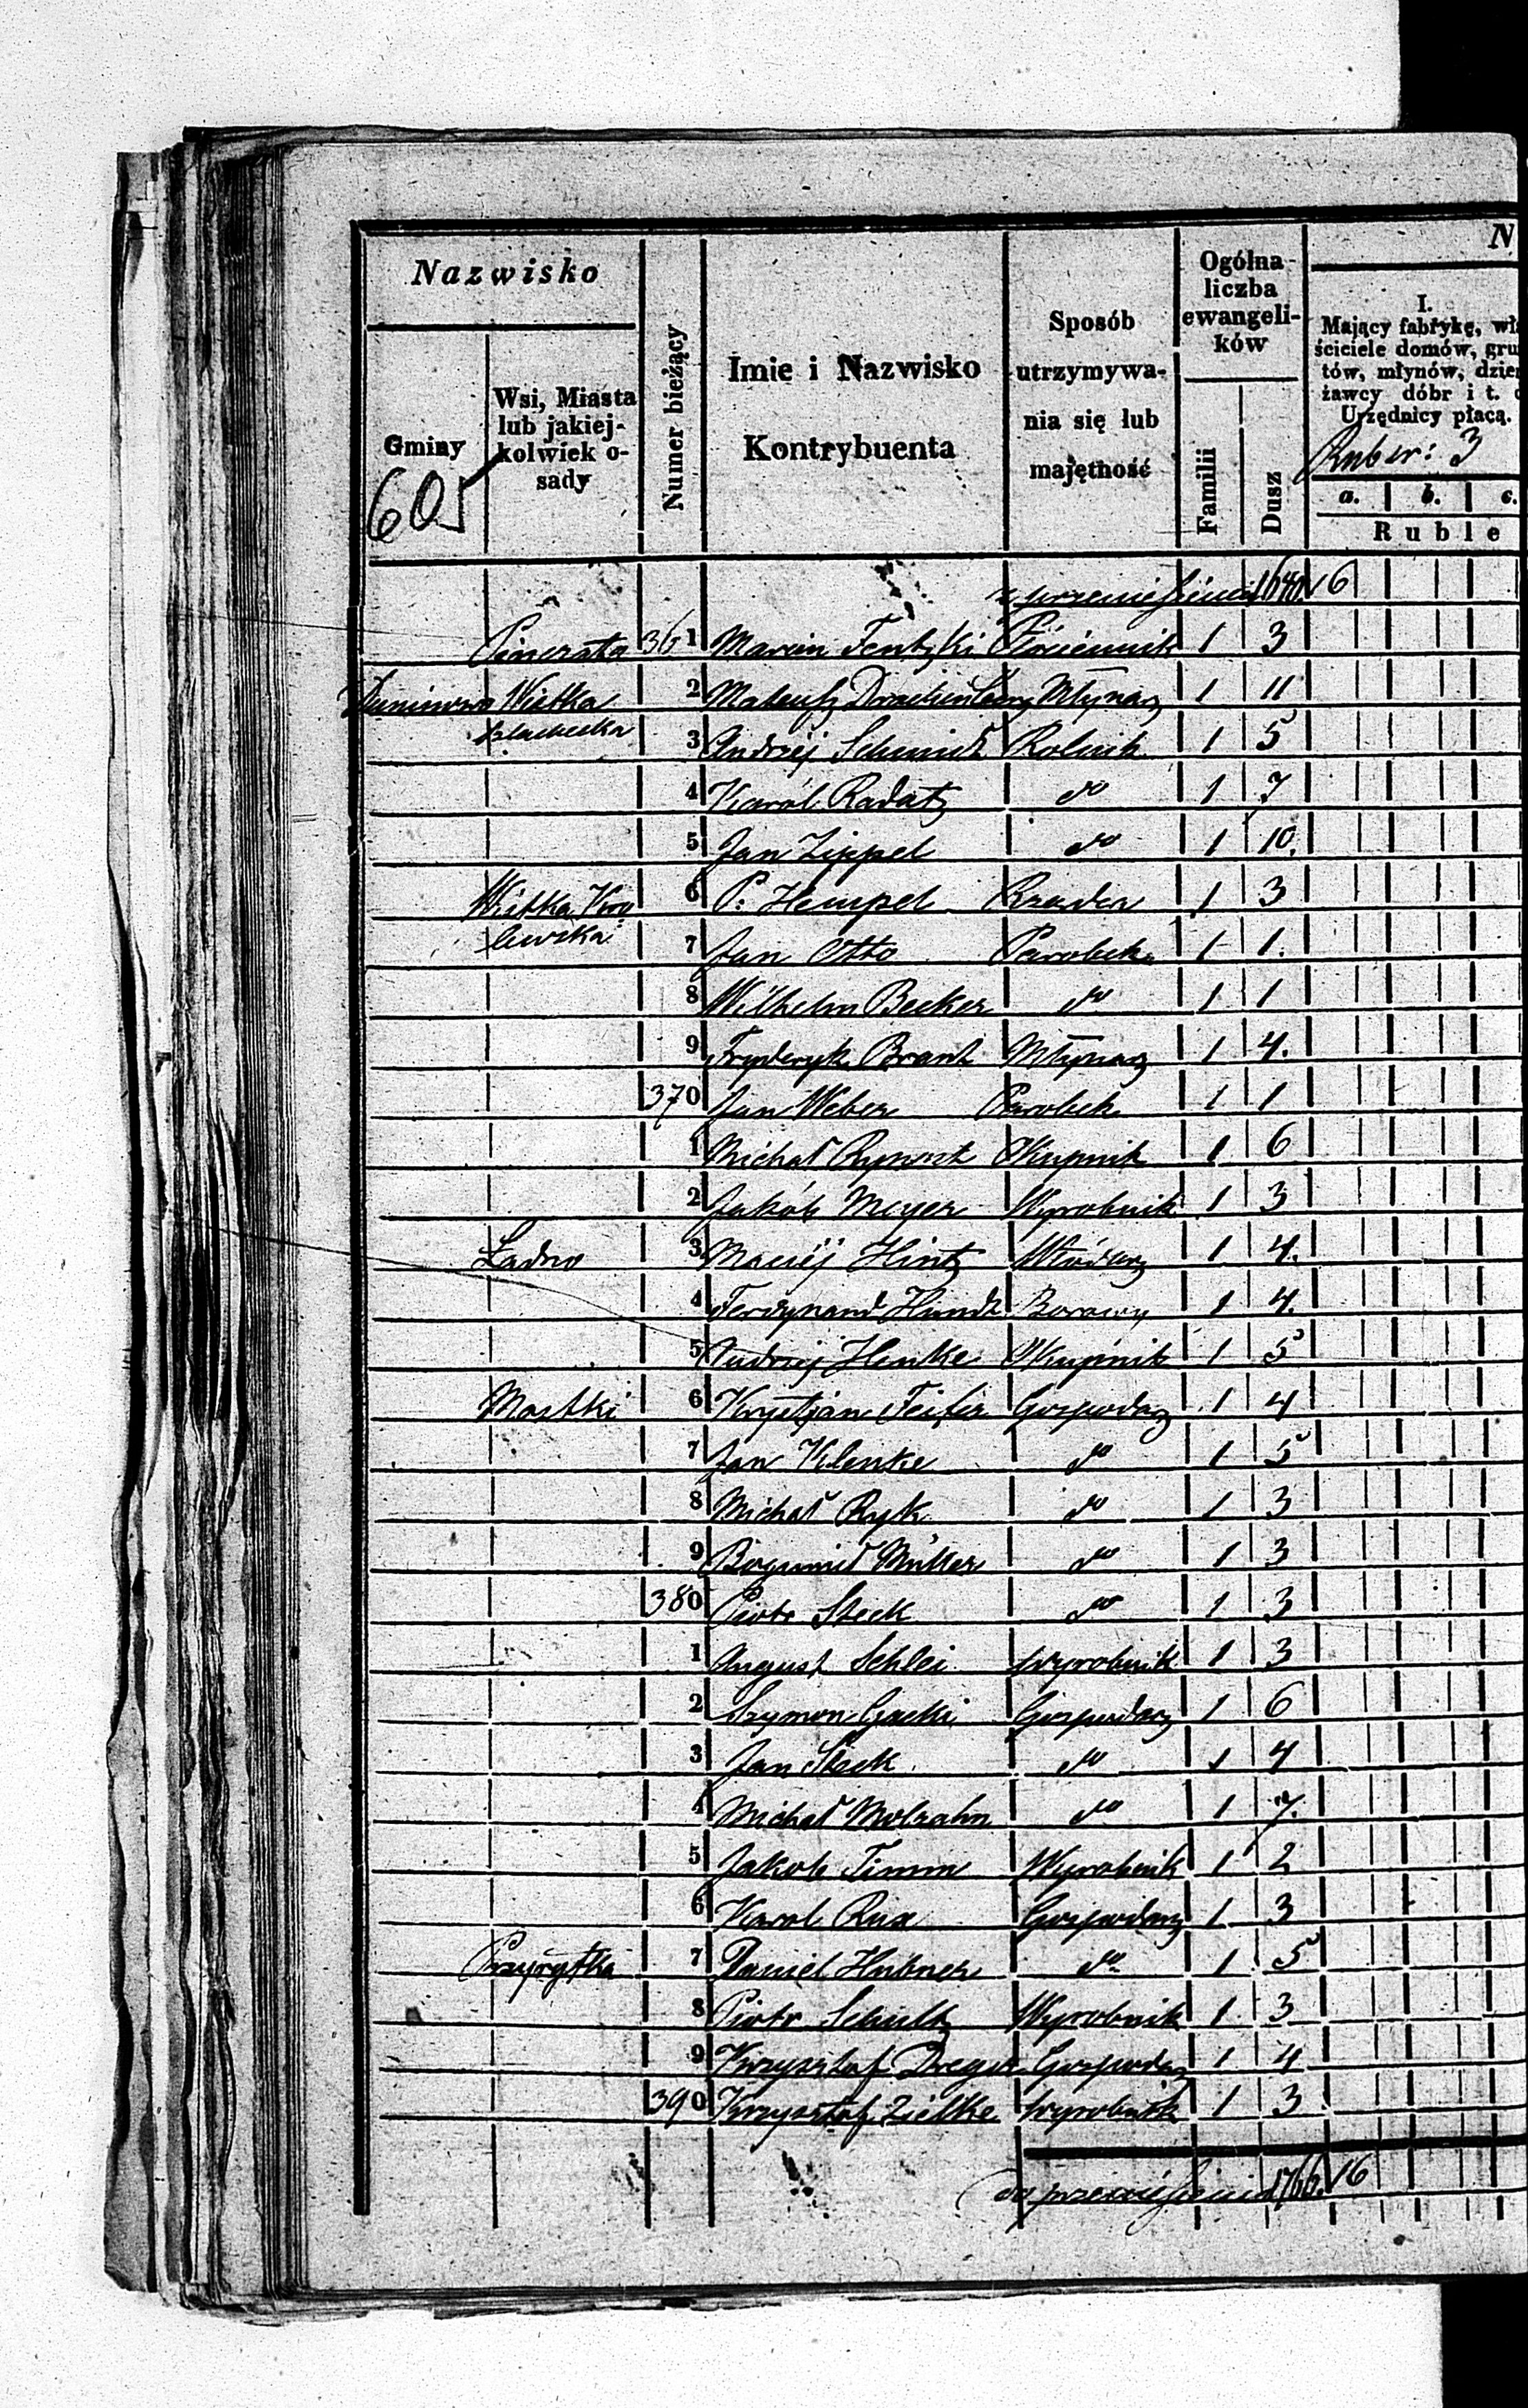 Nazwisko
Gminy
605
Wsi, Miasta
lub jakiej-
kolwiek o-
sady
Numer bieżący
Imie i Nazwisko
Kontrybuenta
Sposób
utrzymywa-
nia się lub
majętność
Ogólna
liczba
ewangeli-
ków
Familii
Dusz
N
I.
Mający fabrykę, wła
ściciele domów, gru
tów, młynów, dzier
żawcy dóbr i t. d
Urzędnicy płacą.
Rubsr: 3
a. b. c.
Ruble
z przeniesienia 1640 16
36 1 Marcin 1 3
Duninowo Wistka 2 Mateusz Młynarz 1 11
szlachecka 3 Andrzéj Schmidt Rolnik 1 5
4 Karól Radatz do 1 7
5 Jan Zippel do 1 10.
Wistka Kró 6 P. Hempel Rzadca 1 3
lewska 7 Jan Otto Parobek 1 1.
8 Wilhelm Becker do 1 1
9 Fryderyk Brant Młynarz 1 4.
370 Jan Weber Parobek 1 1
1 Michał Okupnik 1 6
2 Jakób Meyer Wyrobnik 1 3
3 Maciéj Hintz Włódarz 1 4.
4 Ferdynand Hundt Borowy 1 4.
5 Andrzéj Henke Okupnik 1 5
Mostki 6 Krystjan Feifer Gospodarz 1 4
7 Jan Klenke do 1 5
8 Michał Ryk do 1 3
9 Bogumił Müller do 1 3
380 Piotr Steck do 1 3
1 August Schlei wyrobnik 1 3
2 Szymon Gacki Gospodarz 1 6
3 Jan Steck do 1 4
4 Michał Molzahn do 1 7.
5 Jakob Timm Wyrobnik 1 2
6 Karol Rux Gospodarz 1 3
7 Daniel Hübner do 1 5
8 Piotr Schultz Wyrobnik 1 3
9 Krzysztof Dreger Gospodarz 1 4
390 Krzysztof Zielke wyrobnik 1 3
do przeniesienia 1766 16